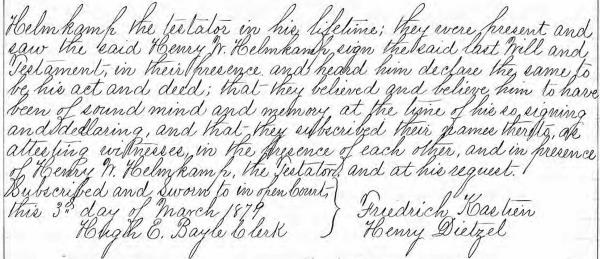 Helmkamp the testator in his lifetime; they were present and
saw the said Henry W. Helmkamp, sign the said last Will and
Testament, in their presence and heard him declare the same to
be his act and deed; that they believed and believe him to have
been of sound mind and memory at the time of his so signing
and declaring, and that they subscribed their names thereto, as
attesting witnesses, in the presence of each other, and in presence
of Henry W. Helmkamp, the Testator, and at his request.
Subscribed and Sworn to in open Court,
this 3rd day of March 1879 Friedrich Kastien
Hugh E. Bayle Clerk Henry Dietzel